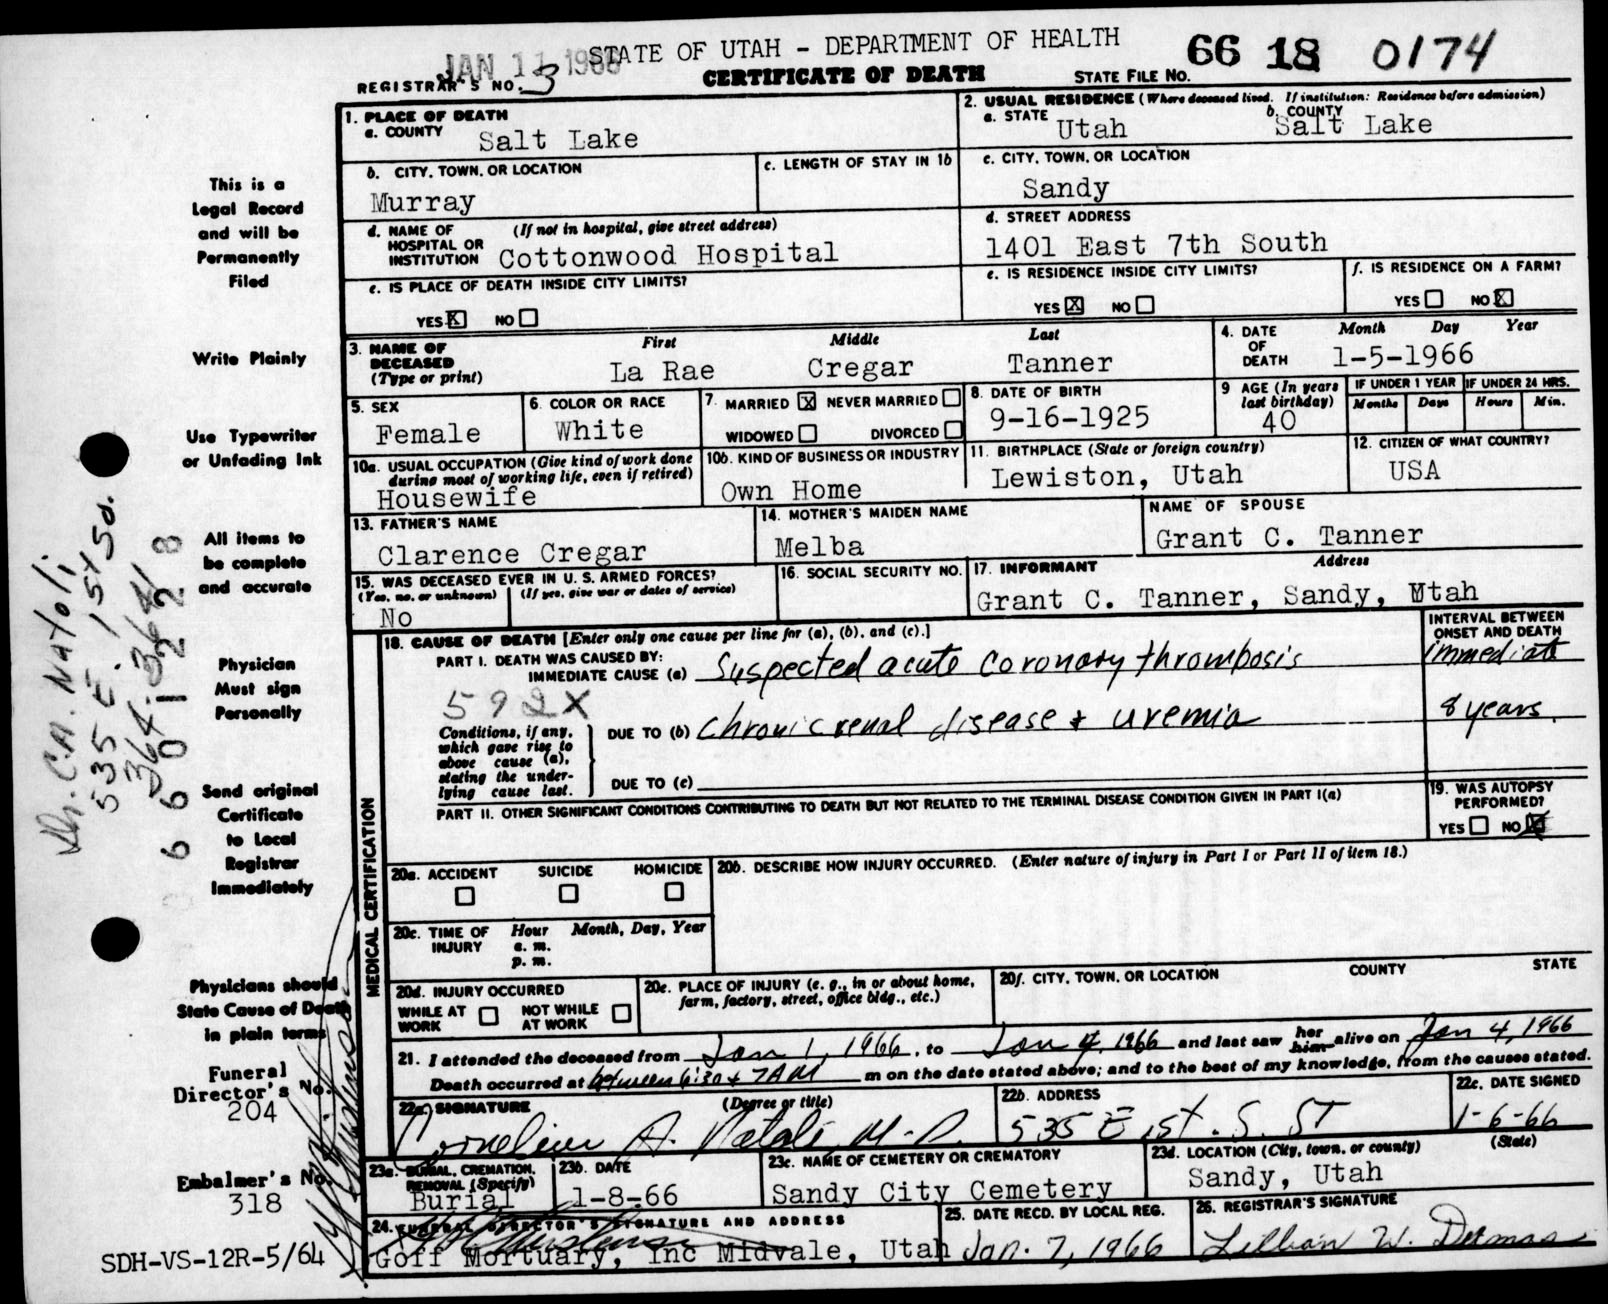 JAN 11 1966
STATE OF UTAH - DEPARTMENT OF HEALTH
66 18 0174
REGISTRAR'S NO. 3
CERTIFICATE OF DEATH
STATE FILE NO.
1. PLACE OF DEATH
a. COUNTY Salt Lake
2. USUAL RESIDENCE (Where deceased lived. If institution: Residence before admission)
a. STATE Utah b. COUNTY Salt Lake
b. CITY, TOWN, OR LOCATION Murray
c. LENGTH OF STAY IN 1b
c. CITY, TOWN, OR LOCATION Sandy
d. NAME OF HOSPITAL OR INSTITUTION (If not in hospital, give street address) Cottonwood Hospital
d. STREET ADDRESS 1401 East 7th South
e. IS PLACE OF DEATH INSIDE CITY LIMITS? YES X NO
e. IS RESIDENCE INSIDE CITY LIMITS? YES X NO
f. IS RESIDENCE ON A FARM? YES NO X
3. NAME OF DECEASED (Type or print) First La Rae Middle Cregar Last Tanner
4. DATE OF DEATH Month Day Year 1-5-1966
5. SEX Female
6. COLOR OR RACE White
7. MARRIED X NEVER MARRIED WIDOWED DIVORCED
8. DATE OF BIRTH 9-16-1925
9 AGE (In years last birthday) 40
IF UNDER 1 YEAR Months Days
IF UNDER 24 HRS. Hours Min.
10a. USUAL OCCUPATION (Give kind of work done during most of working life, even if retired) Housewife
10b. KIND OF BUSINESS OR INDUSTRY Own Home
11. BIRTHPLACE (State or foreign country) Lewiston, Utah
12. CITIZEN OF WHAT COUNTRY? USA
13. FATHER'S NAME Clarence Cregar
14. MOTHER'S MAIDEN NAME Melba
NAME OF SPOUSE Grant C. Tanner
15. WAS DECEASED EVER IN U. S. ARMED FORCES? (Yes, no, or unknown) (If yes, give war or dates of service) No
16. SOCIAL SECURITY NO.
17. INFORMANT Address Grant C. Tanner, Sandy, Utah
MEDICAL CERTIFICATION
18. CAUSE OF DEATH [Enter only one cause per line for (a), (b), and (c).]
INTERVAL BETWEEN ONSET AND DEATH
PART I. DEATH WAS CAUSED BY:
IMMEDIATE CAUSE (a) Suspected acute coronary thrombosis immediate
592X
Conditions, if any, which gave rise to above cause (a), stating the underlying cause last.
DUE TO (b) Chronic renal disease & uremia 8 years
DUE TO (c)
PART II. OTHER SIGNIFICANT CONDITIONS CONTRIBUTING TO DEATH BUT NOT RELATED TO THE TERMINAL DISEASE CONDITION GIVEN IN PART I(a)
19. WAS AUTOPSY PERFORMED? YES NO X
20a. ACCIDENT SUICIDE HOMICIDE
20b. DESCRIBE HOW INJURY OCCURRED. (Enter nature of injury in Part I or Part II of item 18.)
20c. TIME OF INJURY Hour a. m. p. m. Month, Day, Year
20d. INJURY OCCURRED WHILE AT WORK NOT WHILE AT WORK
20e. PLACE OF INJURY (e. g., in or about home, farm, factory, street, office bldg., etc.)
20f. CITY, TOWN, OR LOCATION COUNTY STATE
21. I attended the deceased from Jan 1, 1966, to Jan 4, 1966 and last saw her him alive on Jan 4, 1966
Death occurred at between 6:30 & 7AM m on the date stated above; and to the best of my knowledge, from the causes stated.
22a. SIGNATURE (Degree or title) Cornelius A. Natoli M.D.
22b. ADDRESS 535 E 1st. S. ST
22c. DATE SIGNED 1-6-66
23a. BURIAL, CREMATION, REMOVAL (Specify) Burial
23b. DATE 1-8-66
23c. NAME OF CEMETERY OR CREMATORY Sandy City Cemetery
23d. LOCATION (City, town, or county) (State) Sandy, Utah
24. FUNERAL DIRECTOR'S SIGNATURE AND ADDRESS
Goff Mortuary, Inc Midvale, Utah
25. DATE RECD. BY LOCAL REG. Jan. 7, 1966
26. REGISTRAR'S SIGNATURE Lillian W.
This is a
Legal Record
and will be
Permanently
Filed
Write Plainly
Use Typewriter
or Unfading Ink
All items to
be complete
and accurate
Physician
Must sign
Personally
Send original
Certificate
to Local
Registrar
Immediately
Physicians should
State Cause of Death
in plain terms
Funeral
Director's No.
204
Embalmer's No.
318
SDH-VS-12R-5/64
Dr. C.A. Natoli
535 E. 1st So.
6 6 0 1 2 2 8